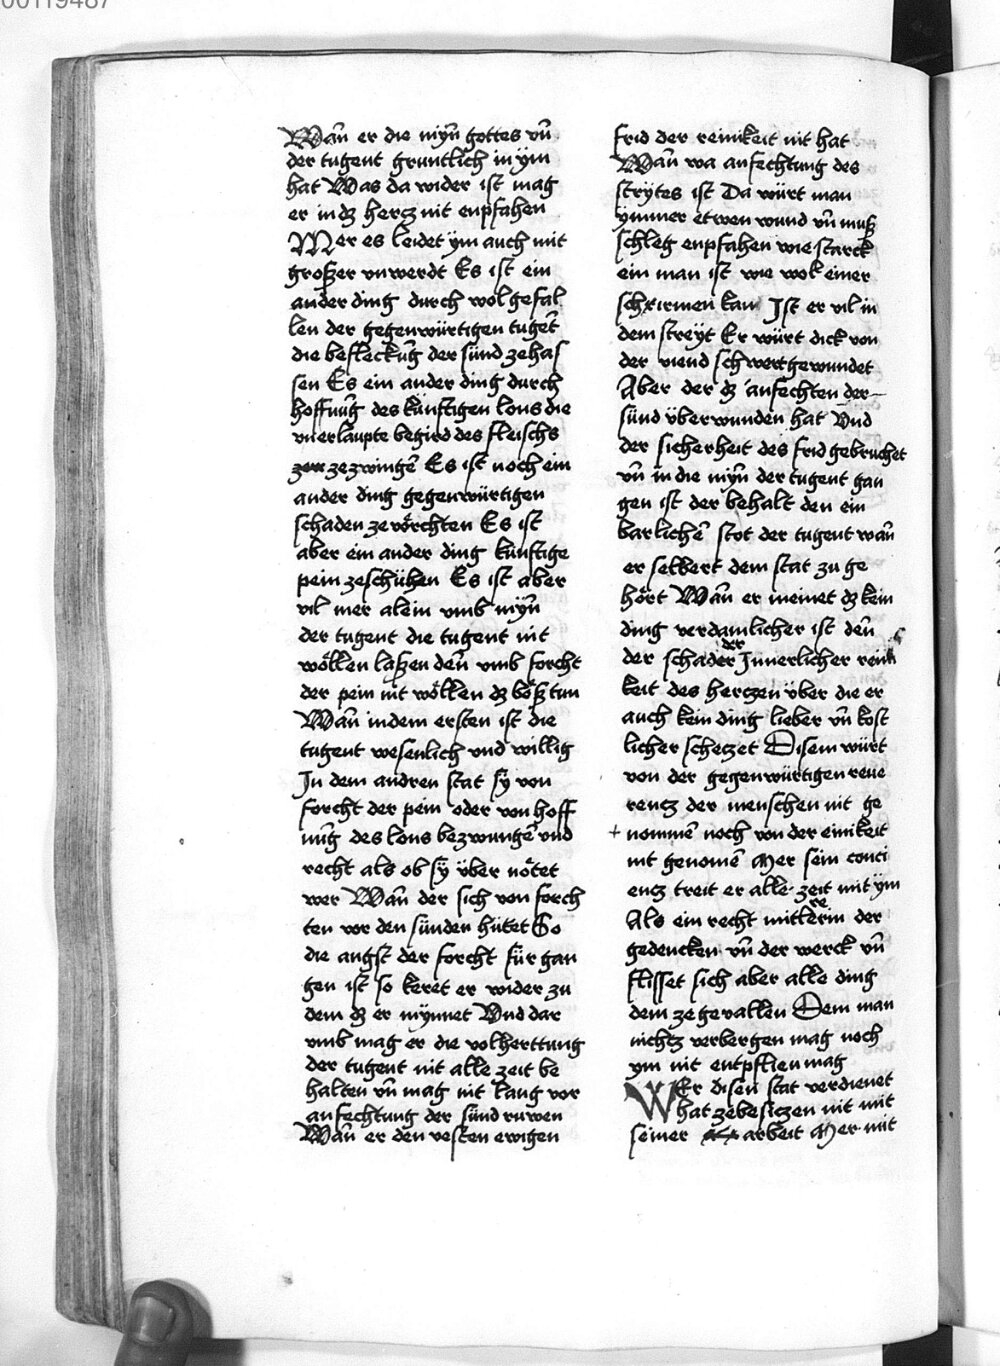 00119487
Wan̄ er die myn̄ gottes vn̄
der tugent gruntlich in ym
hat Was da wider ist mag
er in dz hercz nit enpfahen
Mer es leidet ym auch mit
groſzer vnwerdt Es ist ein
ander ding durch wolgefal
len der gegenwürtigen tuget̄
die befleckūg der sünd zehas
sen Es ein ander ding durch
hoffnūg des künftigen lons die
vnerlaupte begird des fleischs
zezwingē Es ist noch ein
ander ding gegenwürtigen
schaden zevörchten Es ist
aber ein ander ding künftige
pein zeschühen Es ist aber
vil mer alein vmb myn̄
der tugent die tugent nit
wöllen laſzen den̄ vmb forcht
der pein nit wöllen dz böſz tun
Wan̄ in dem ersten ist die
tugent wesenlich vnd willig
In dem andren stat sy von
forcht der pein oder von hoff
nūg des lons bezwungē vnd
recht als ob sy über nötet
wer Wan̄ der sich von forch
ten vor den sünden hütet So
die angst der forcht für gan
gen ist so keret er wider zu
dem dz er mynnet Vnd dar
vmb mag er die volherttung
der tugent nit alle zeit be
halten vn̄ mag nit lang vor
anfechtung der sünd ruwen
Wan̄ er den vesten ewigen
frid der reinikeit nit hat
Wan̄ wa anfechtung des
strytes ist Da würt man
ymmer etwen wund vn̄ muſz
schleg enpfahen wie starck
ein man ist wie wol einer
schirmen kan Ist er vil in
dem streyt Er würt dick von
der viend schwert gewundet
Aber der dz anfechten der
sünd überwunden hat Vnd
der sicherheit des frid gebruchet
vn̄ in die myn̄ der tugent gan
gen ist der behalt den ein
barlichē stot der tugent wan̄
er selbert dem stat zu ge
hört Wan̄ er meinet dz kein
ding verdamlicher ist den̄
der schad der Innerlicher reini
keit des herczen über die er
auch kein ding lieber vn̄ kost
licher scheczet Disem würt
von der gegenwürtigen reue
rencz der menschen nit ge
+ nommē noch von der einikeit
nit genomē Mer sein conci
encz treit er alle zeit mit ym
Als ein recht mitlerin der
gedencken vn̄ der werck vn̄
flisset sich aber alle ding
dem zegevallen Dem man
nichcz verbergen mag noch
ym nit entpflien mag
WEr disen stat verdienet
hat zebesiczen nit mit
seiner arbeit Mer mit